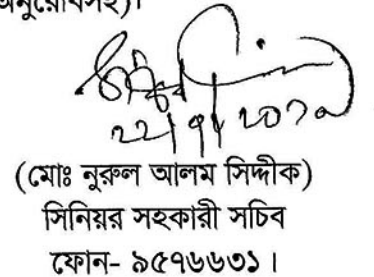 অনুরোধসহ)।
(মোঃ নুরুল আলম সিদ্দীক)
সিনিয়র সহকারী সচিব
ফোন- ৯৫৭৬৬৩১।